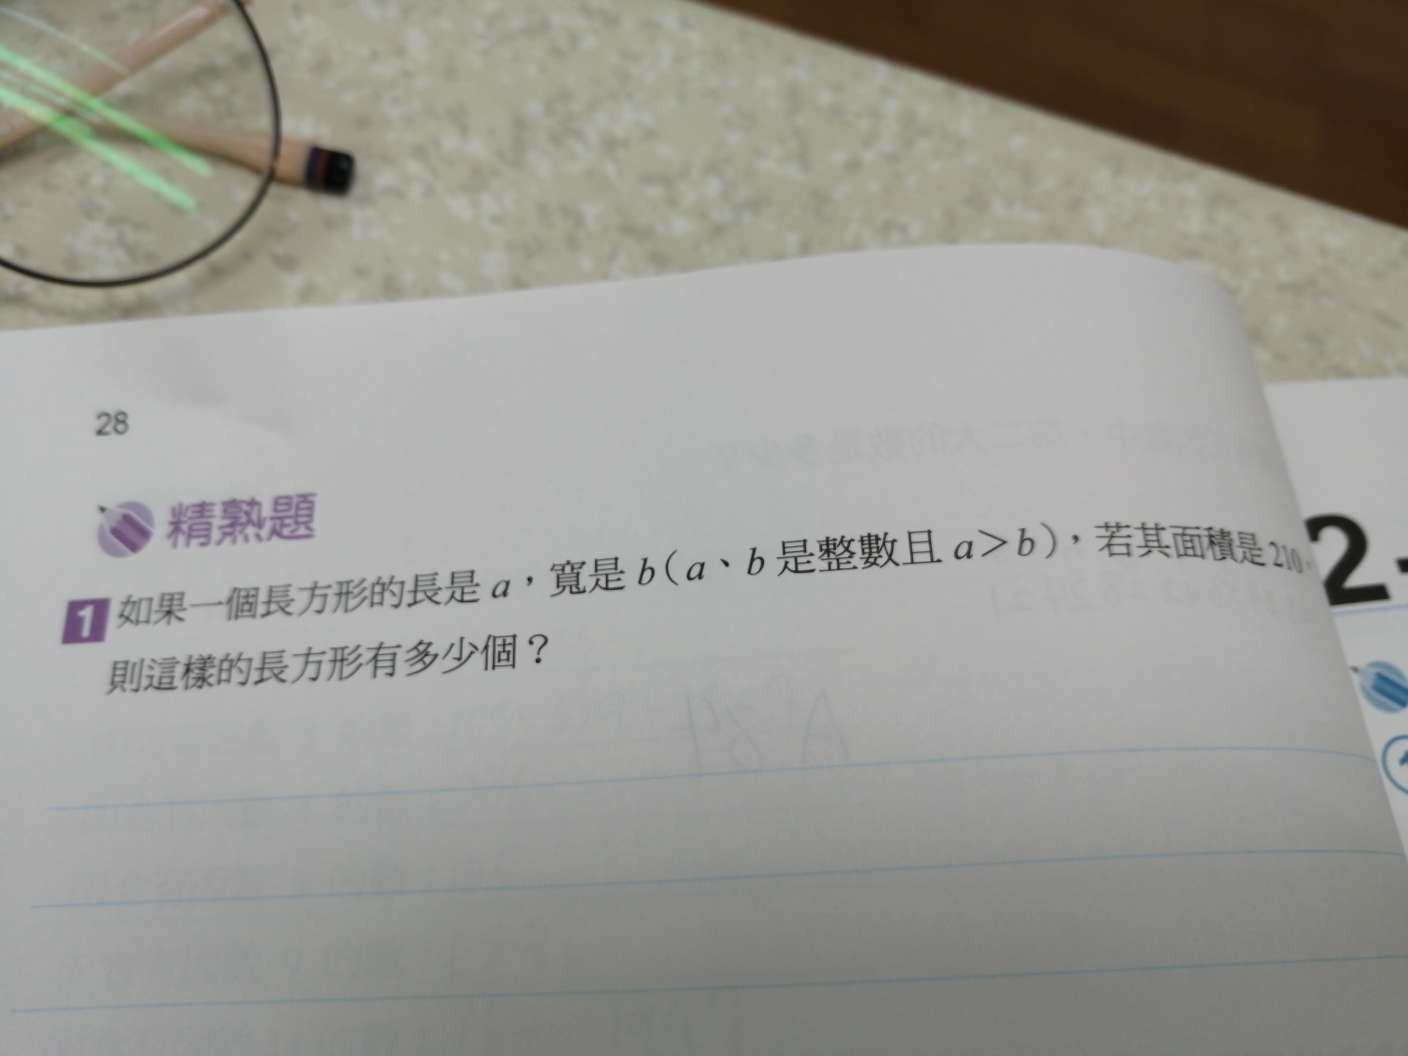 28
精熟題
1 如果一個長方形的長是 a，寬是 b（a、b 是整數且 a＞b），若其面積是 210，
則這樣的長方形有多少個？
2